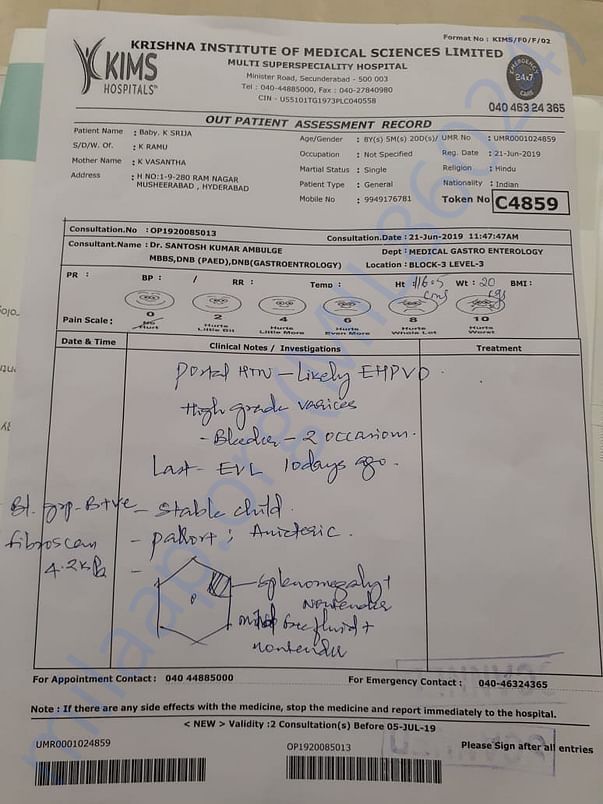 Format No : KIMS/F0/F/02
KIMS
HOSPITALS
KRISHNA INSTITUTE OF MEDICAL SCIENCES LIMITED
MULTI SUPERSPECIALITY HOSPITAL
Minister Road, Secunderabad - 500 003
Tel : 040-44885000, Fax : 040-27840980
CIN - U55101TG1973PLC040558
EMERGENCY
24x7
040 463 24 365
OUT PATIENT ASSESSMENT RECORD
Patient Name : Baby. K SRIJA
S/D/W. Of. : K RAMU
Mother Name : K VASANTHA
Address : H NO:1-9-280 RAM NAGAR
MUSHEERABAD , HYDERABAD
Age/Gender : 8Y(s) 5M(s) 20D(s)/
Occupation : Not Specified
Martial Status : Single
Patient Type : General
Mobile No : 9949176781
UMR No : UMR0001024859
Reg. Date : 21-Jun-2019
Religion : Hindu
Nationality : Indian
Token No C4859
Consultation.No : OP1920085013
Consultation.Date : 21-Jun-2019 11:47:47AM
Consultant.Name : Dr. SANTOSH KUMAR AMBULGE
Dept : MEDICAL GASTRO ENTEROLOGY
MBBS,DNB (PAED),DNB(GASTROENTROLOGY)
Location : BLOCK-3 LEVEL-3
PR : BP : / RR : Temp : Ht 116.5 cms Wt : 20 kgs BMI :
Pain Scale :
0 2 4 6 8 10
No Hurt
Hurts Little Bit
Hurts Little More
Hurts Even More
Hurts Whole Lot
Hurts Worst
Date & Time Clinical Notes / Investigations Treatment
Portal HTN - Likely EHPVO
High grade varices
- Bleeder - 2 occasions.
Last - EVL 10 days ago.
Bl. grp - B+ve - Stable child.
fibroscan - pallor+ ; Anicteric.
4.2 kPa -
Splenomegaly+
nontender
mild free fluid+
nontender
For Appointment Contact : 040 44885000
For Emergency Contact : 040-46324365
Note : If there are any side effects with the medicine, stop the medicine and report immediately to the hospital.
< NEW > Validity :2 Consultation(s) Before 05-JUL-19
UMR0001024859
OP1920085013
Please Sign after all entries